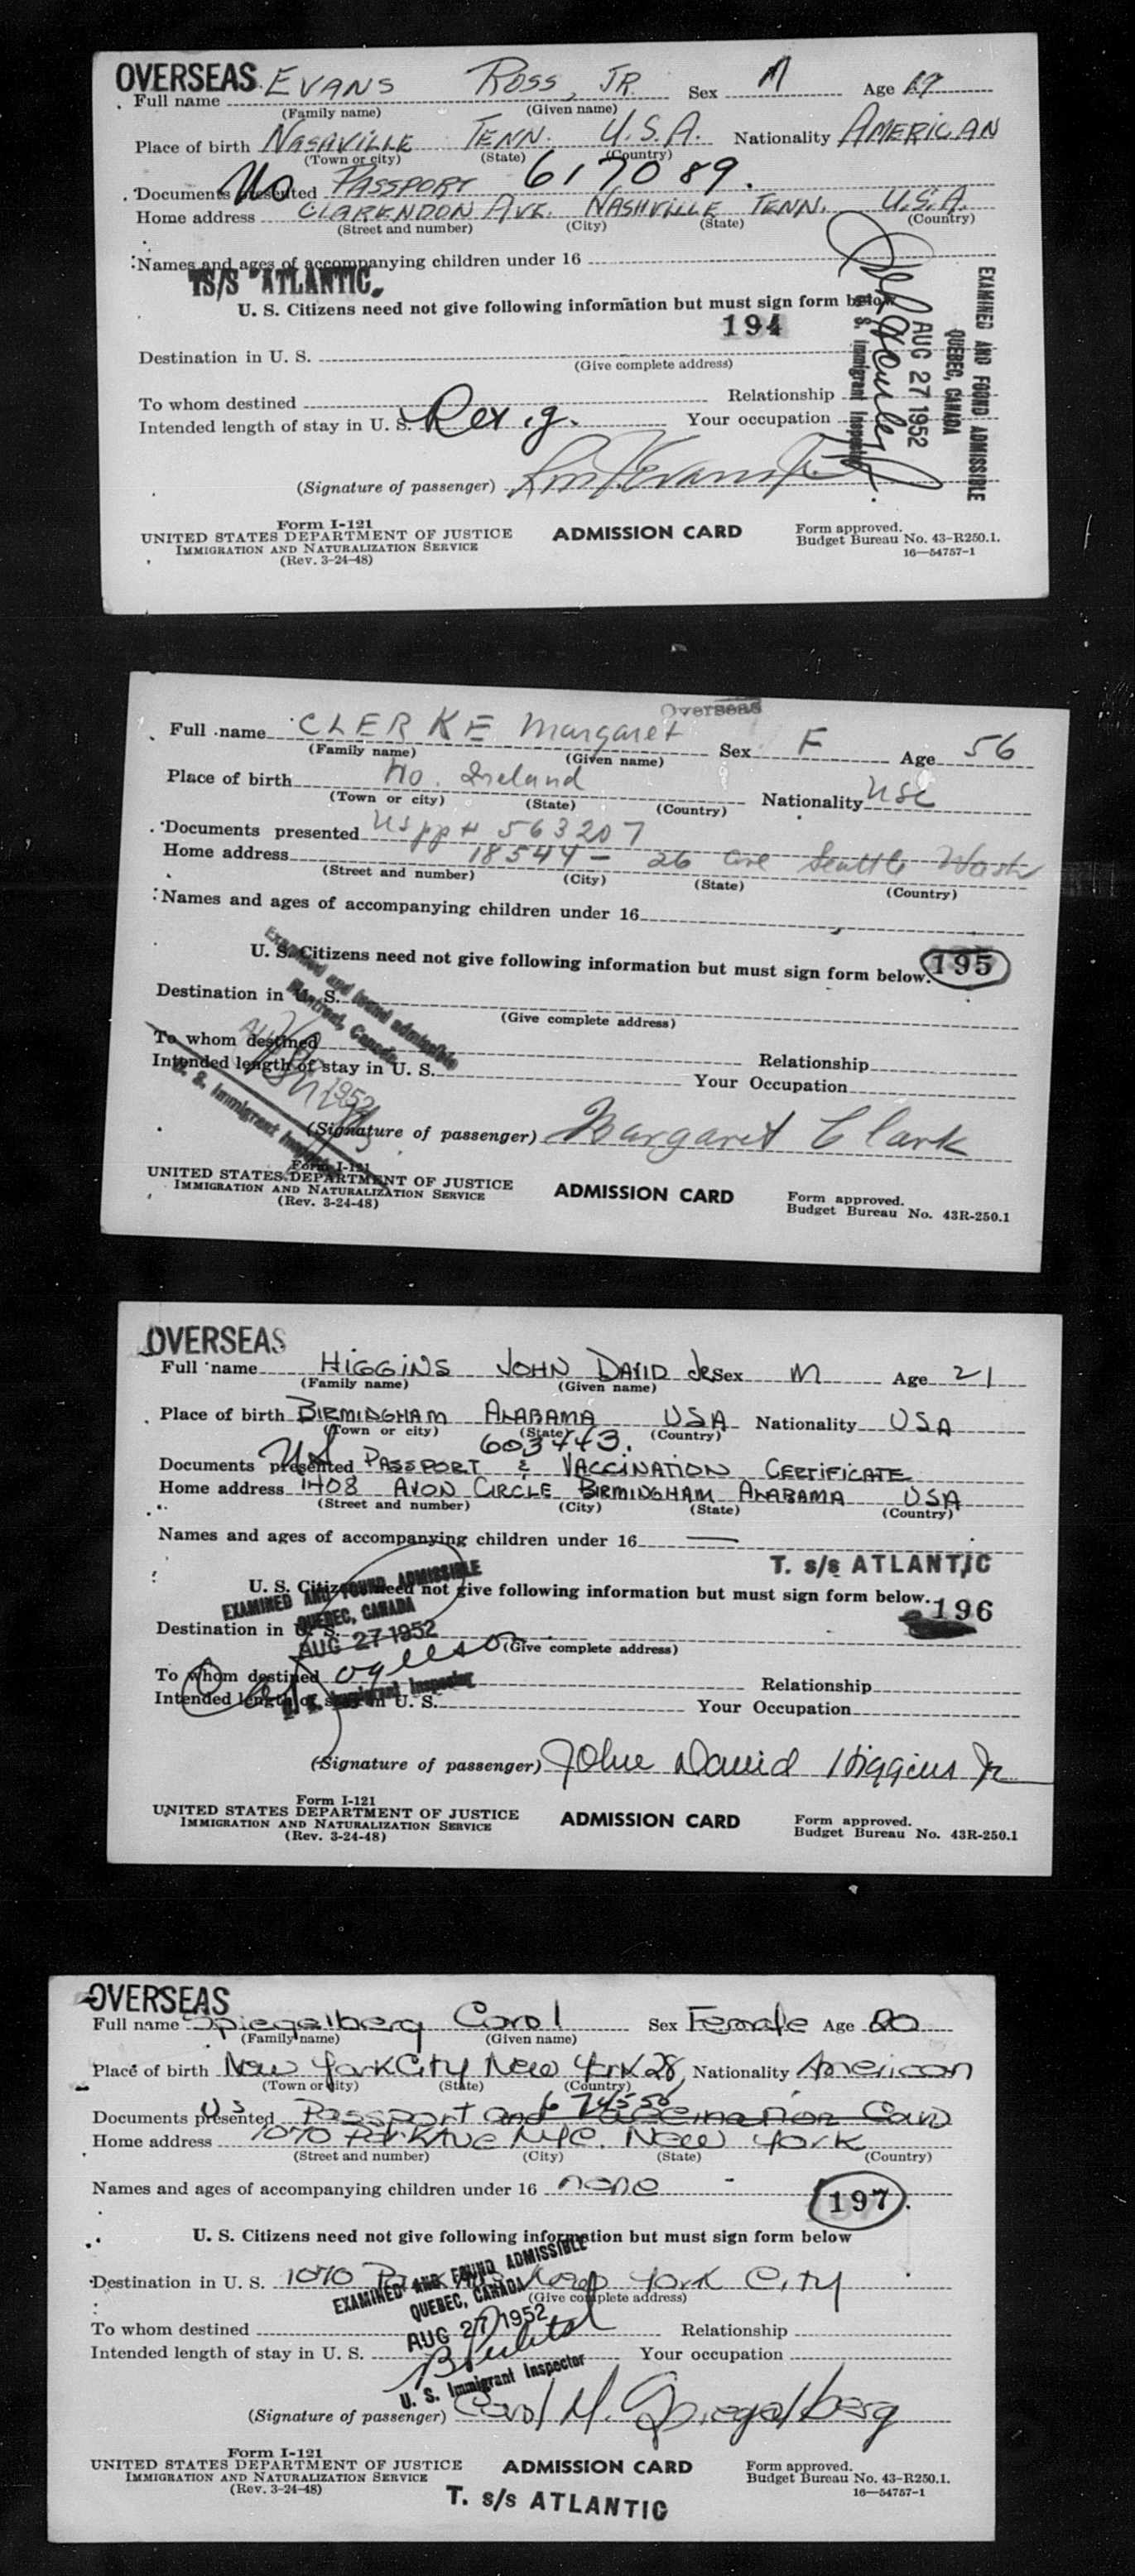 OVERSEAS EVANS ROSS, JR. Sex M Age
Full name (Family name) (Given name)
Place of birth NASHVILLE TENN. U.S.A. Nationality AMERICAN
(Town or city) (State) (Country)
Documents presented PASSPORT 617089.
Home address CLARENDON AVE. NASHVILLE TENN. U.S.A.
(Street and number) (City) (State) (Country)
Names and ages of accompanying children under 16
TS/S ATLANTIC.
U. S. Citizens need not give following information but must sign form below
194
Destination in U. S.
(Give complete address)
To whom destined Relationship
Intended length of stay in U. S. Your occupation
(Signature of passenger)
EXAMINED AND FOUND ADMISSIBLE
QUEBEC, CANADA
AUG 27 1952
U. S. Immigrant Inspector
Form I-121
UNITED STATES DEPARTMENT OF JUSTICE ADMISSION CARD Form approved.
IMMIGRATION AND NATURALIZATION SERVICE Budget Bureau No. 43-R250.1.
(Rev. 3-24-48) 16—54757-1
Overseas
Full name CLERKE Margaret Sex F Age 56
(Family name) (Given name)
Place of birth No. Ireland Nationality USC
(Town or city) (State) (Country)
Documents presented US pp # 563207
Home address 18544 - 26 Ave Seattle Wash
(Street and number) (City) (State) (Country)
Names and ages of accompanying children under 16
U. S. Citizens need not give following information but must sign form below. 195
Destination in U. S.
(Give complete address)
To whom destined Relationship
Intended length of stay in U. S. Your Occupation
Examined and found admissible
Montreal, Canada
1952
U. S. Immigrant Inspector
(Signature of passenger) Margaret Clark
Form I-121
UNITED STATES DEPARTMENT OF JUSTICE ADMISSION CARD Form approved.
IMMIGRATION AND NATURALIZATION SERVICE Budget Bureau No. 43R-250.1
(Rev. 3-24-48)
OVERSEAS
Full name HIGGINS JOHN DAVID Jr Sex M Age 21
(Family name) (Given name)
Place of birth BIRMINGHAM ALABAMA USA Nationality USA
(Town or city) (State) (Country)
603443.
Documents presented US PASSPORT & VACCINATION CERTIFICATE
Home address 1408 AVON CIRCLE BIRMINGHAM ALABAMA USA
(Street and number) (City) (State) (Country)
Names and ages of accompanying children under 16 —
T. s/s ATLANTIC
U. S. Citizens need not give following information but must sign form below. 196
EXAMINED AND FOUND ADMISSIBLE
QUEBEC, CANADA
AUG 27 1952
Destination in U. S.
(Give complete address)
To whom destined Relationship
Intended length of stay in U. S. Your Occupation
U. S. Immigrant Inspector
(Signature of passenger) John David Higgins Jr
Form I-121
UNITED STATES DEPARTMENT OF JUSTICE ADMISSION CARD Form approved.
IMMIGRATION AND NATURALIZATION SERVICE Budget Bureau No. 43R-250.1
(Rev. 3-24-48)
OVERSEAS
Full name Spiegelberg Carol Sex Female Age 20
(Family name) (Given name)
Place of birth New York City New York 28, Nationality American
(Town or city) (State) (Country)
Documents presented U S Passport and Vaccination Card
Home address 1070 Park Ave NYC. New York
(Street and number) (City) (State) (Country)
Names and ages of accompanying children under 16 none
197
U. S. Citizens need not give following information but must sign form below
Destination in U. S. 1070 Park Ave New York City
(Give complete address)
EXAMINED AND FOUND ADMISSIBLE
QUEBEC, CANADA
AUG 27 1952
To whom destined Relationship
Intended length of stay in U. S. Your occupation
U. S. Immigrant Inspector
(Signature of passenger) Carol M. Spiegelberg
Form I-121
UNITED STATES DEPARTMENT OF JUSTICE ADMISSION CARD Form approved.
IMMIGRATION AND NATURALIZATION SERVICE Budget Bureau No. 43-R250.1.
(Rev. 3-24-48) 16—54757-1
T. s/s ATLANTIC